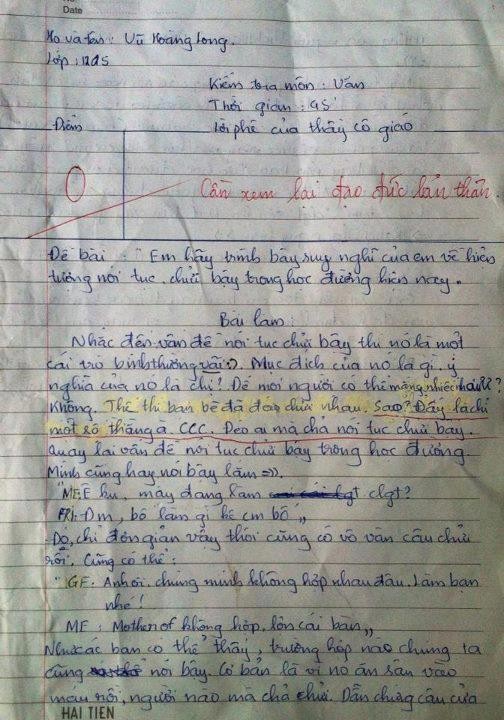 No
Date
Họ và tên : Vũ Hoàng Long.
Lớp : 12A5
Kiểm tra môn : Văn
Thời gian : 45'
Điểm
Lời phê của thầy cô giáo
0
Cần xem lại đạo đức bản thân
Đề bài : " Em hãy trình bày suy nghĩ của em về hiện
tượng nói tục, chửi bậy trong học đường hiện nay.
Bài làm :
Nhắc đến vấn đề nói tục chửi bậy thì nó là một
cái trò bình thường vãi :). Mục đích của nó là gì, ý
nghĩa của nó là chi! Để mọi người có thể mạng nhiếc nhau ư?
Không. Thế thì bạn bè đã đéo chửi nhau. Sao? Đấy là chỉ
một số thằng à. CCC. Đéo ai mà chả nói tục chửi bậy.
Quay lại vấn đề nói tục chửi bậy trong học đường.
Mình cũng hay nói bậy lắm =)).
"ME: Ê ku, mày đang làm clgt?
FRI: Đm, bố làm gì kệ cm bố "
Đó, chỉ đơn giản vậy thôi cũng có vô vàn câu chửi
rồi. Cũng có thể :
"GF : Anh ơi, chúng mình không hợp nhau đâu. Làm bạn
nhé !
ME : Mother of không hợp, lồn cái bạn "
Như các bạn có thể thấy, trường hợp nào chúng ta
cũng nói bậy. Cơ bản là vì nó ăn sâu vào
máu rồi, người nào mà chả chửi. Dẫn chứng câu của
HAI TIEN